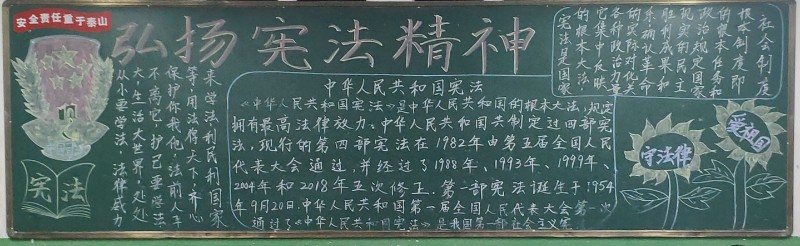 安全责任重于泰山
弘扬宪法精神
来学法利民利国家
等,用法得天下,齐心
保护你我他,法前人平
不离它,护己要学法
大生活大世界,处处
从小要学法,法律威力
宪法
中华人民共和国宪法
《中华人民共和国宪法》是中华人民共和国的根本大法,规定
拥有最高法律效力。中华人民共和国共制定过四部宪
法,现行的第四部宪法在1982年由第五届全国人民
代表大会通过,并经过了1988年、1993年、1999年、
2004年和2018年五次修正。第一部宪法诞生于1954
年9月20日,中华人民共和国第一届全国人民代表大会第一次
通过了《中华人民共和国宪法》是我国第一部社会主义宪
社会制度
根本制度即
的根本任务和
政治规定国家
现实的民主
胜利成果和
系,确认革命
的实际对比关
各种政治力量
它集中反映
的根本大法,
宪法是国家
守法律
爱祖国